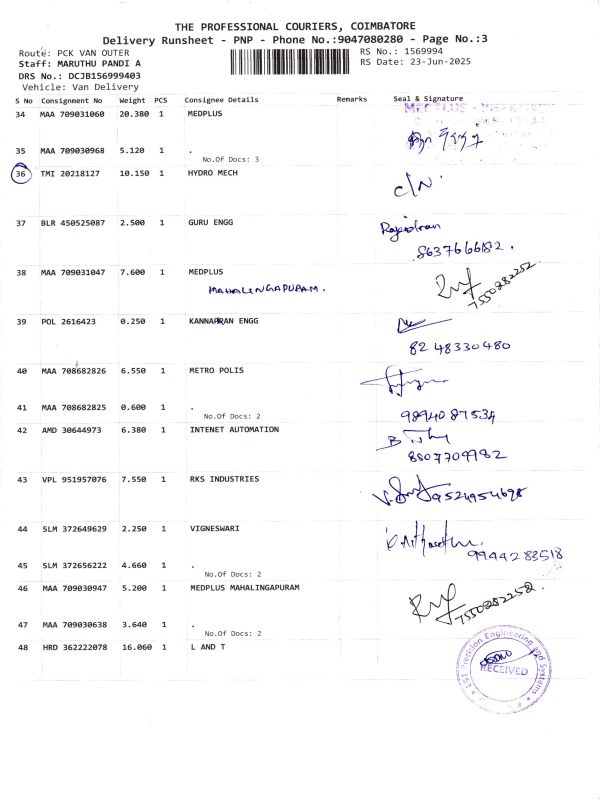 THE PROFESSIONAL COURIERS, COIMBATORE
Delivery Runsheet - PNP - Phone No.:9047080280 - Page No.:3
Route: PCK VAN OUTER
RS No.: 1569994
Staff: MARUTHU PANDI A
RS Date: 23-Jun-2025
DRS No.: DCJB156999403
Vehicle: Van Delivery
S No Consignment No Weight PCS Consignee Details Remarks Seal & Signature
34 MAA 709031060 20.380 1 MEDPLUS
35 MAA 709030968 5.120 1 .
No.Of Docs: 3
36 TMI 20218127 10.150 1 HYDRO MECH
C/N.
37 BLR 450525087 2.500 1 GURU ENGG
8637666182.
38 MAA 709031047 7.600 1 MEDPLUS
MAHALINGAPURAM.
7550282252
39 POL 2616423 0.250 1 KANNAPRAN ENGG
8248330480
40 MAA 708682826 6.550 1 METRO POLIS
41 MAA 708682825 0.600 1 .
No.Of Docs: 2
9894087534
42 AMD 30644973 6.380 1 INTENET AUTOMATION
8807709982
43 VPL 951957076 7.550 1 RKS INDUSTRIES
9524954698
44 SLM 372649629 2.250 1 VIGNESWARI
9944283518
45 SLM 372656222 4.660 1 .
No.Of Docs: 2
46 MAA 709030947 5.200 1 MEDPLUS MAHALINGAPURAM
7550282252.
47 MAA 709030638 3.640 1 .
No.Of Docs: 2
48 HRD 362222078 16.060 1 L AND T
Precision Engineering and Systems
RECEIVED